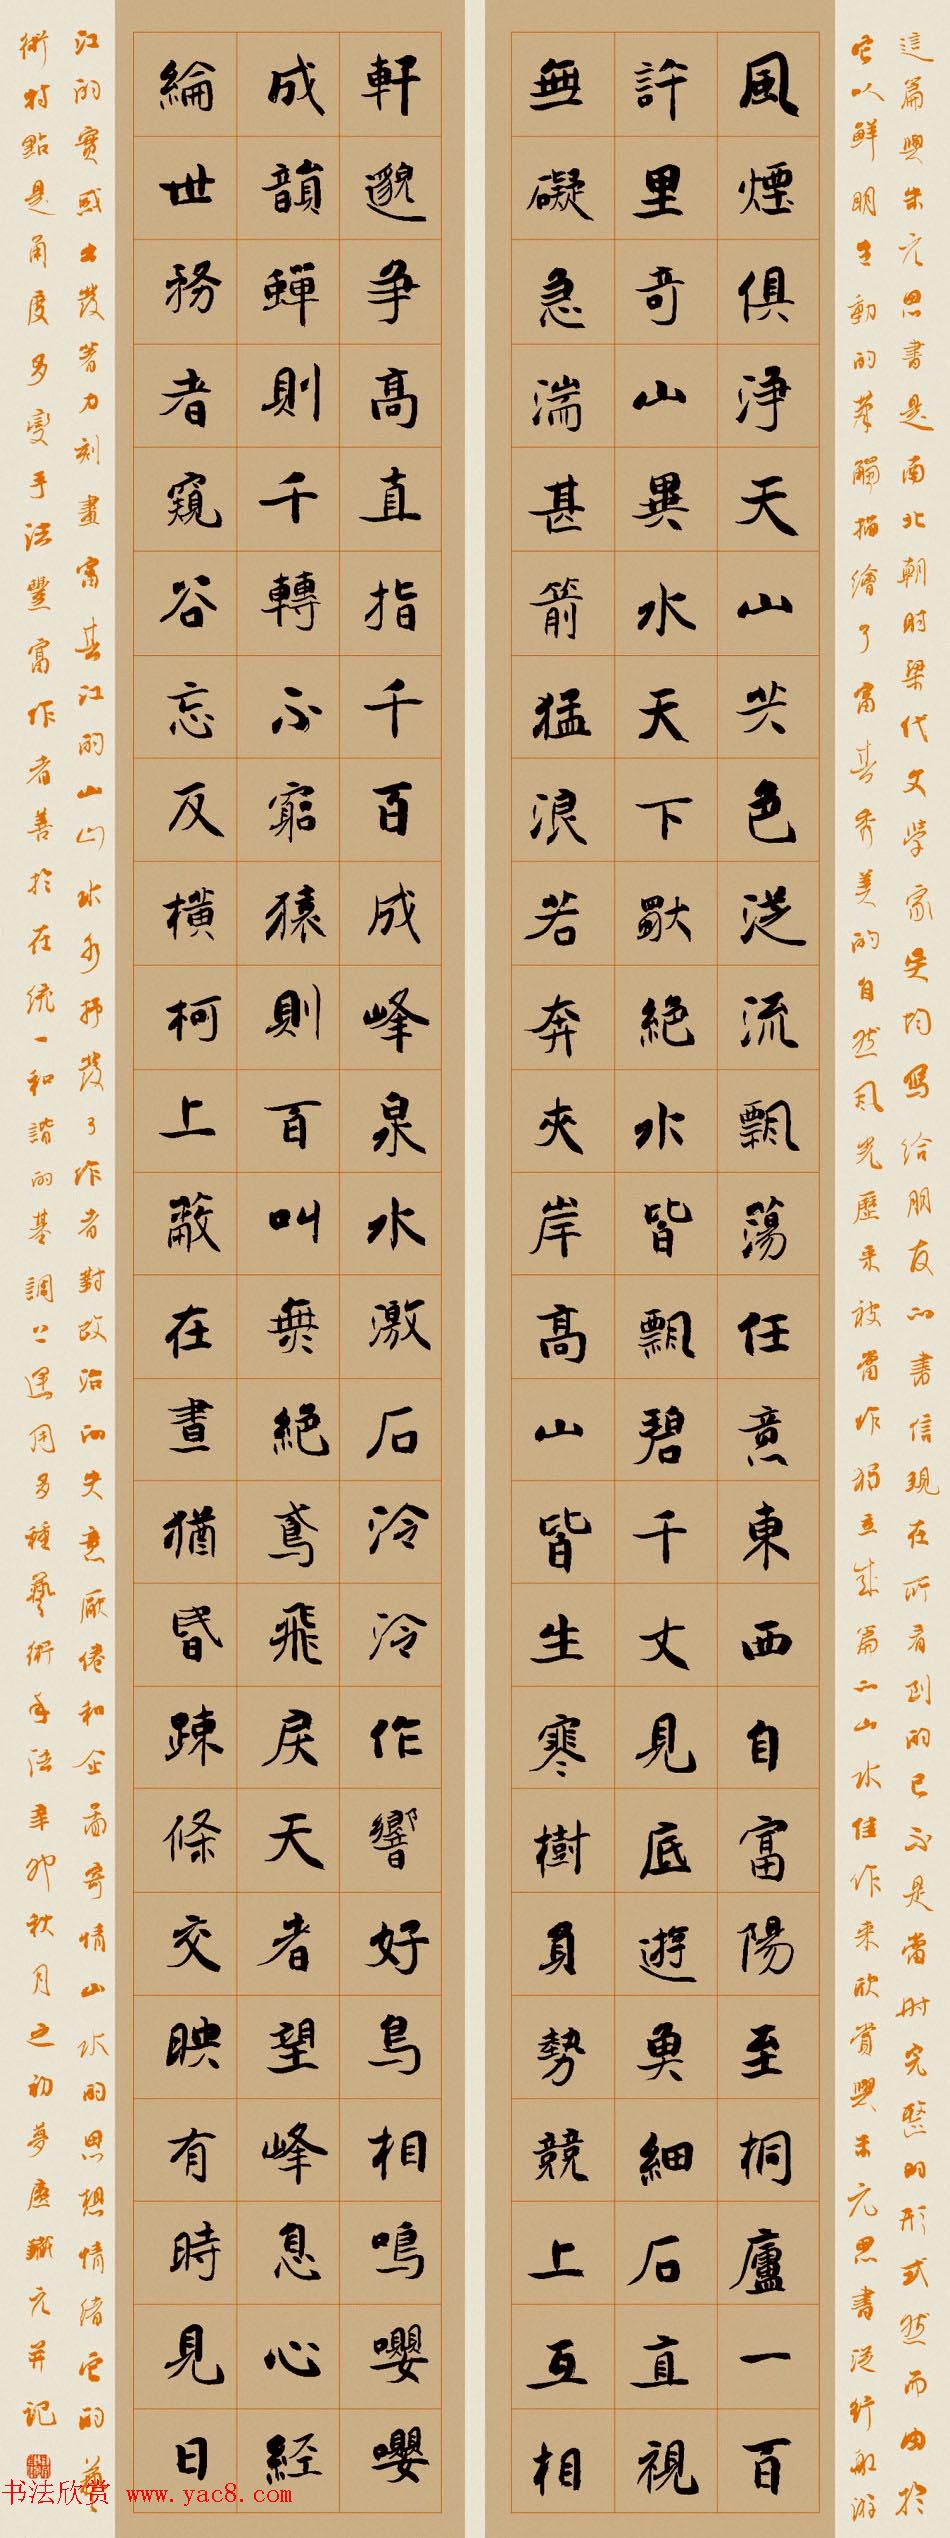 這篇與朱元思書是南北朝時梁代文學家吳均寫給朋友的書信現在所看到的已不是當時完整的形式然而由於
它以鮮明生動的筆觸描繪了富春秀美的自然風光歷來被當作獨立成篇的山水佳作來欣賞與朱元思書從行船游
風煙俱淨天山共色從流飄蕩任意東西自富陽至桐廬一百
許里奇山異水天下獨絕水皆飄碧千丈見底遊魚細石直視
無礙急湍甚箭猛浪若奔夾岸高山皆生寒樹負勢競上互相
軒邈爭高直指千百成峰泉水激石泠泠作響好鳥相鳴嚶嚶
成韻蟬則千轉不窮猿則百叫無絕鳶飛戾天者望峰息心經
綸世務者窺谷忘反橫柯上蔽在晝猶昏疎條交映有時見日
江的實感出發着力刻畫富春江的山山水水抒發了作者對政治的失意厭倦和企圖寄情山水的思想情緒它的藝
術特點是角度多變手法豐富作者善於在統一和諧的基調上運用多種藝術手法辛卯秋月之初夢元并記
书法欣赏 www.yac8.com